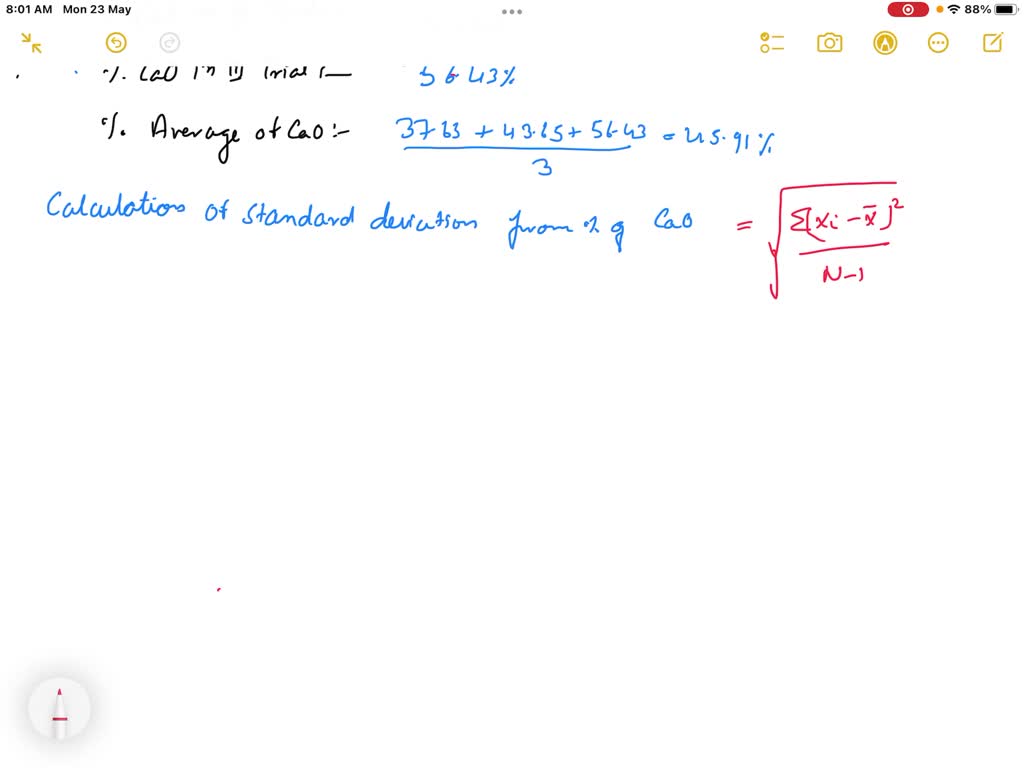 8:01 AM Mon 23 May 88%
%. CaO in III trial :- 56.43%
%. Average of CaO:- 37.63 + 43.65 + 56.43 = 45.91%
3
Calculation of standard deviation from % of CaO = √ Σ(xi - x̄)²
N-1